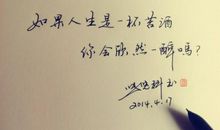 如果人生是一杯苦酒
你会欣然一醉吗？
2014.4.17